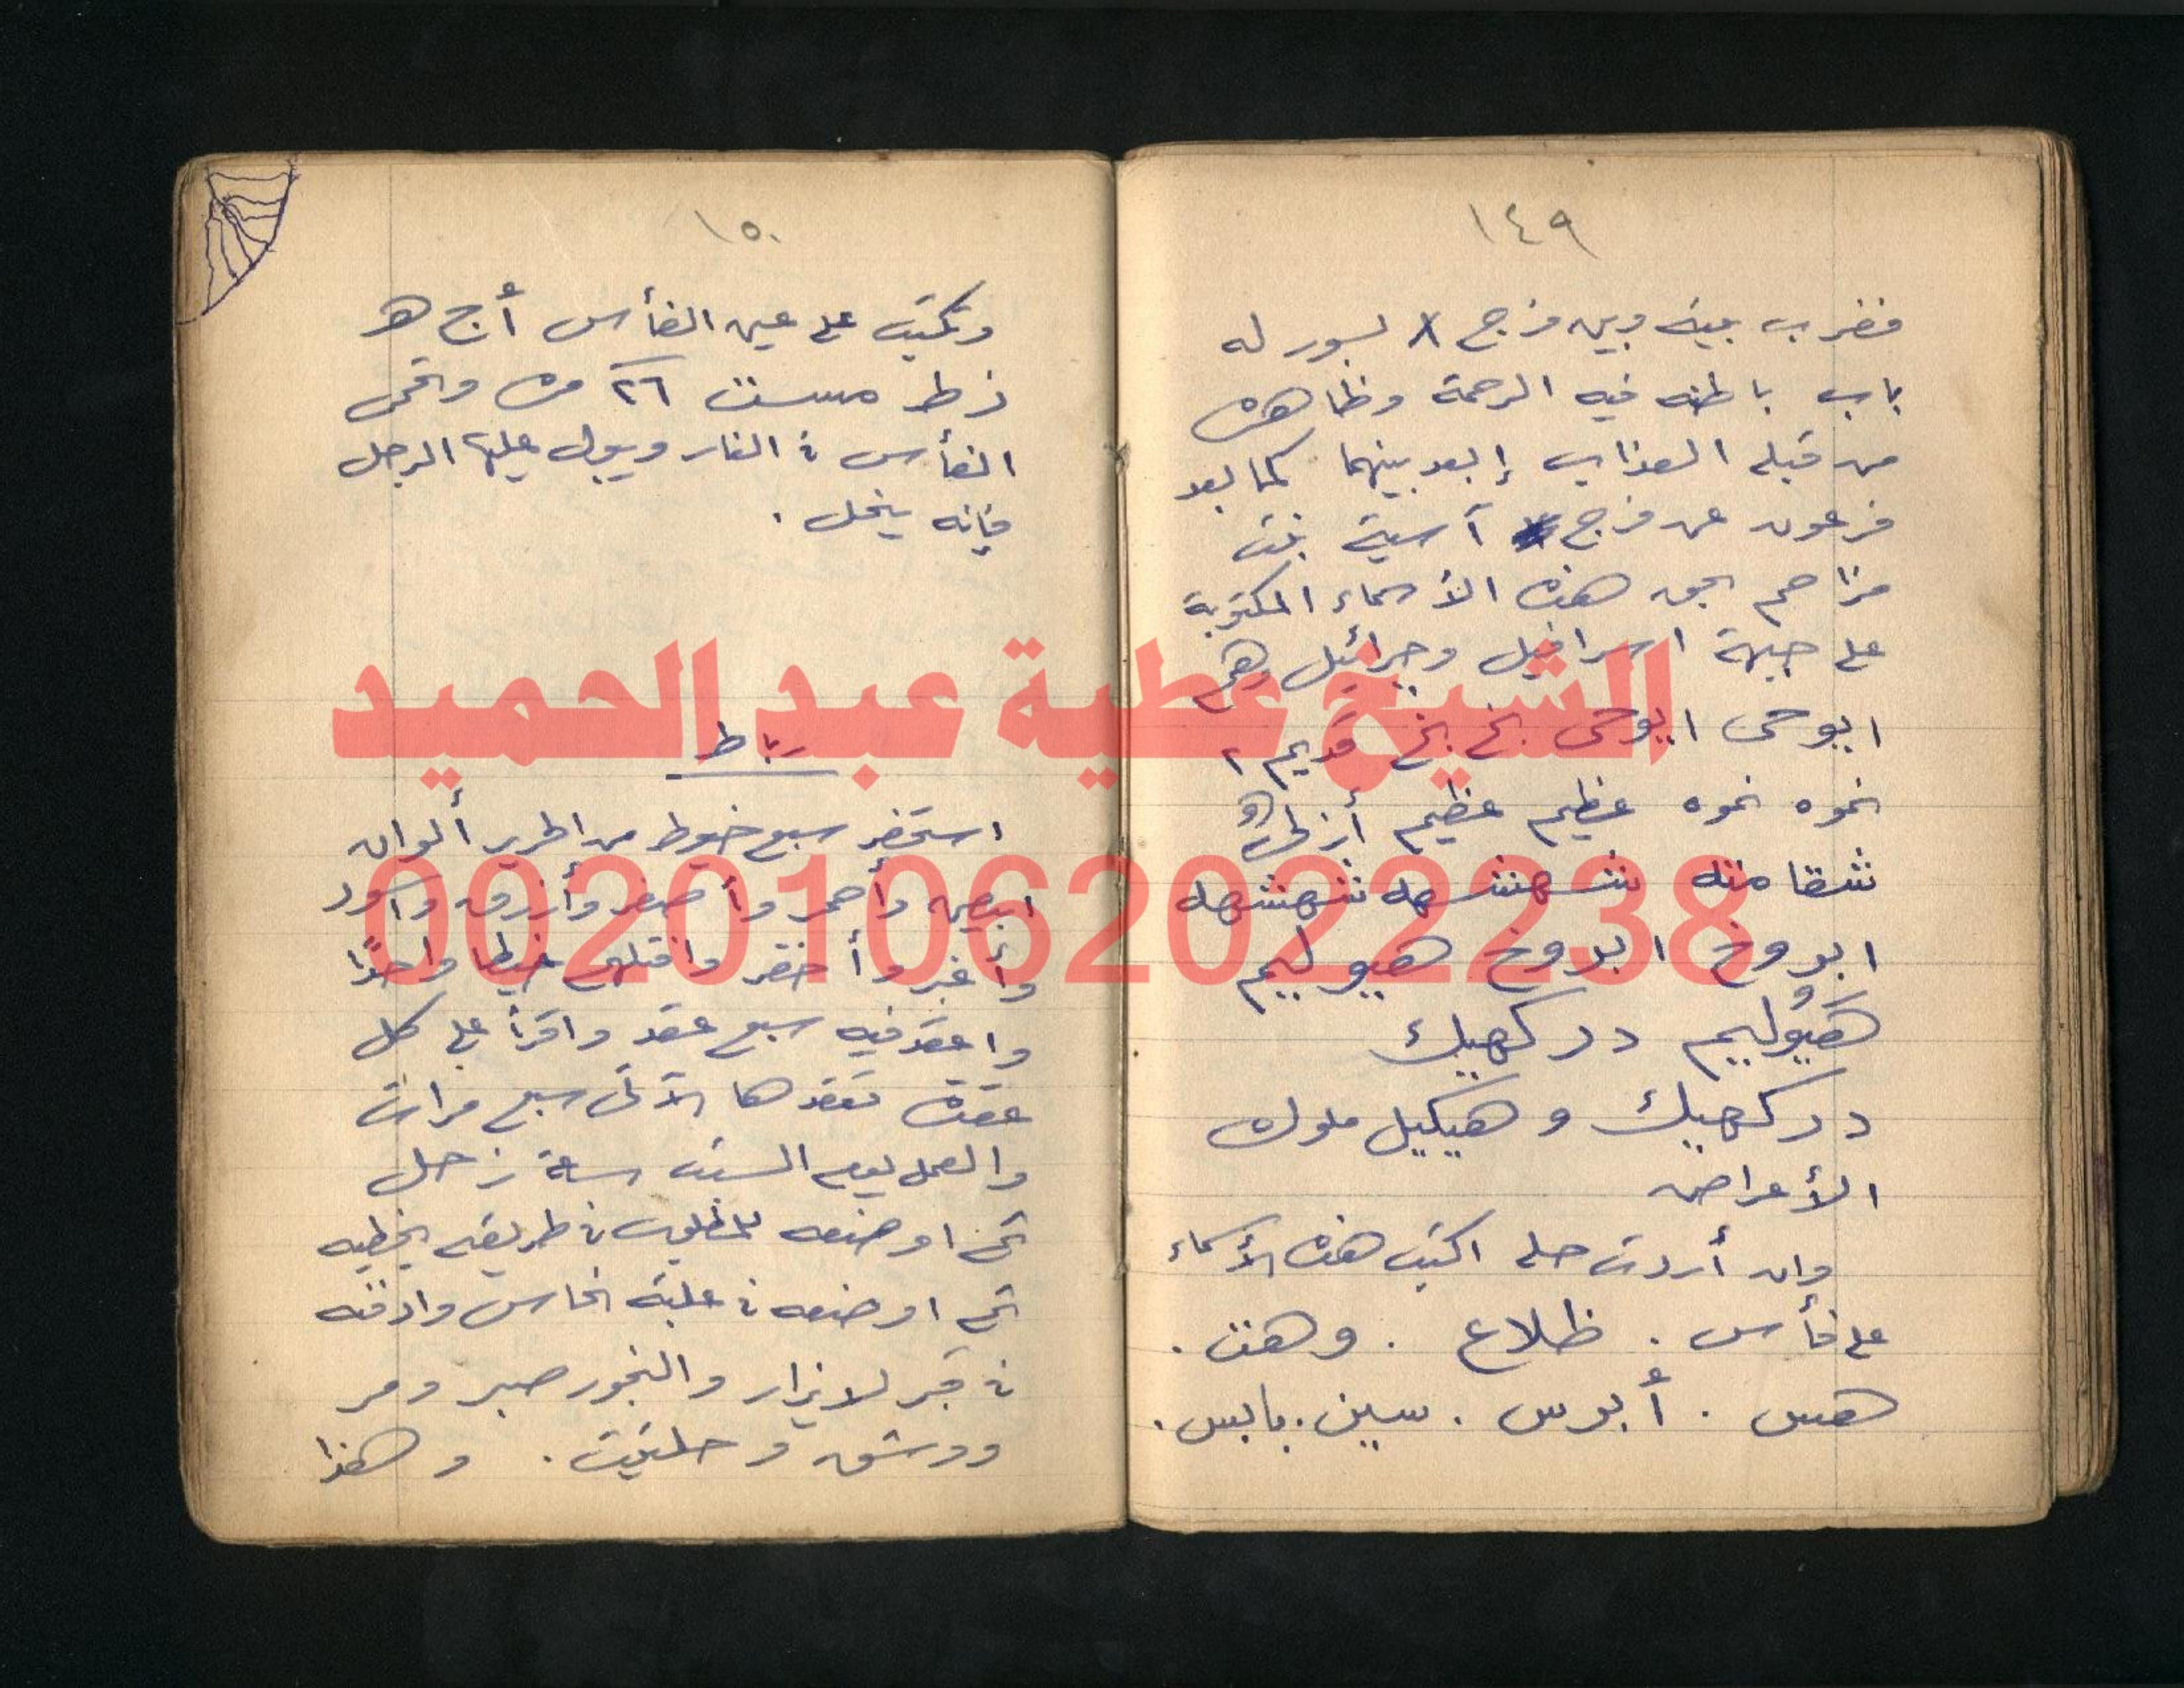 ١٤٩
فضرب بينه وبين فرج X بسور له
باب باطنه فيه الرحمة وظاهره
من قبله العذاب إبعد بينهما كما بعد
فرعون عن فرج آسية بنت
مزاحم بحق هذه الأسماء المكتوبة
على جبهة اسرافيل وجبرائيل وهم
ايوحى ايوحى بخ بخ قديم ٢
نموه نموه عظيم عظيم أزلى
شقامنه شهنشهه شهنشهه
ابروخ ابروخ هيوليم
هيوليم دركهيك
دركهيك وهيكيل ملوك
الأعراض
وان أردت حله اكتب هذه الأسماء
على فأس . ظلاع . وهنت .
هس . أبرس . سين . بابس .
١٥٠
وتكتب على عين الفأس أ ج هـ
زط ٢٦ مره وتحمى
الفأس في النار ويبول عليها الرجل
فإنه ينحل .
رباط
استحضر سبع خيوط من الحرير ألوان
ابيض وأحمر وأصفر وأزرق وأسود
وأغبر وأخضر وافتلهم خيطا واحدًا
واعقد فيه سبع عقد واقرأ على كل
عقدة تعقدها الآتى سبع مرات
والعمل يوم السبت ساعة زحل
ثم اوضعه للمطلوب في طريقه يخطيه
ثم اوضعه في علبة نحاس وادفنه
في قبر لا يزار والبخور صبر ومر
ووشق وحلتيت . وهذا
الشيخ عطية عبد الحميد
00201062022238